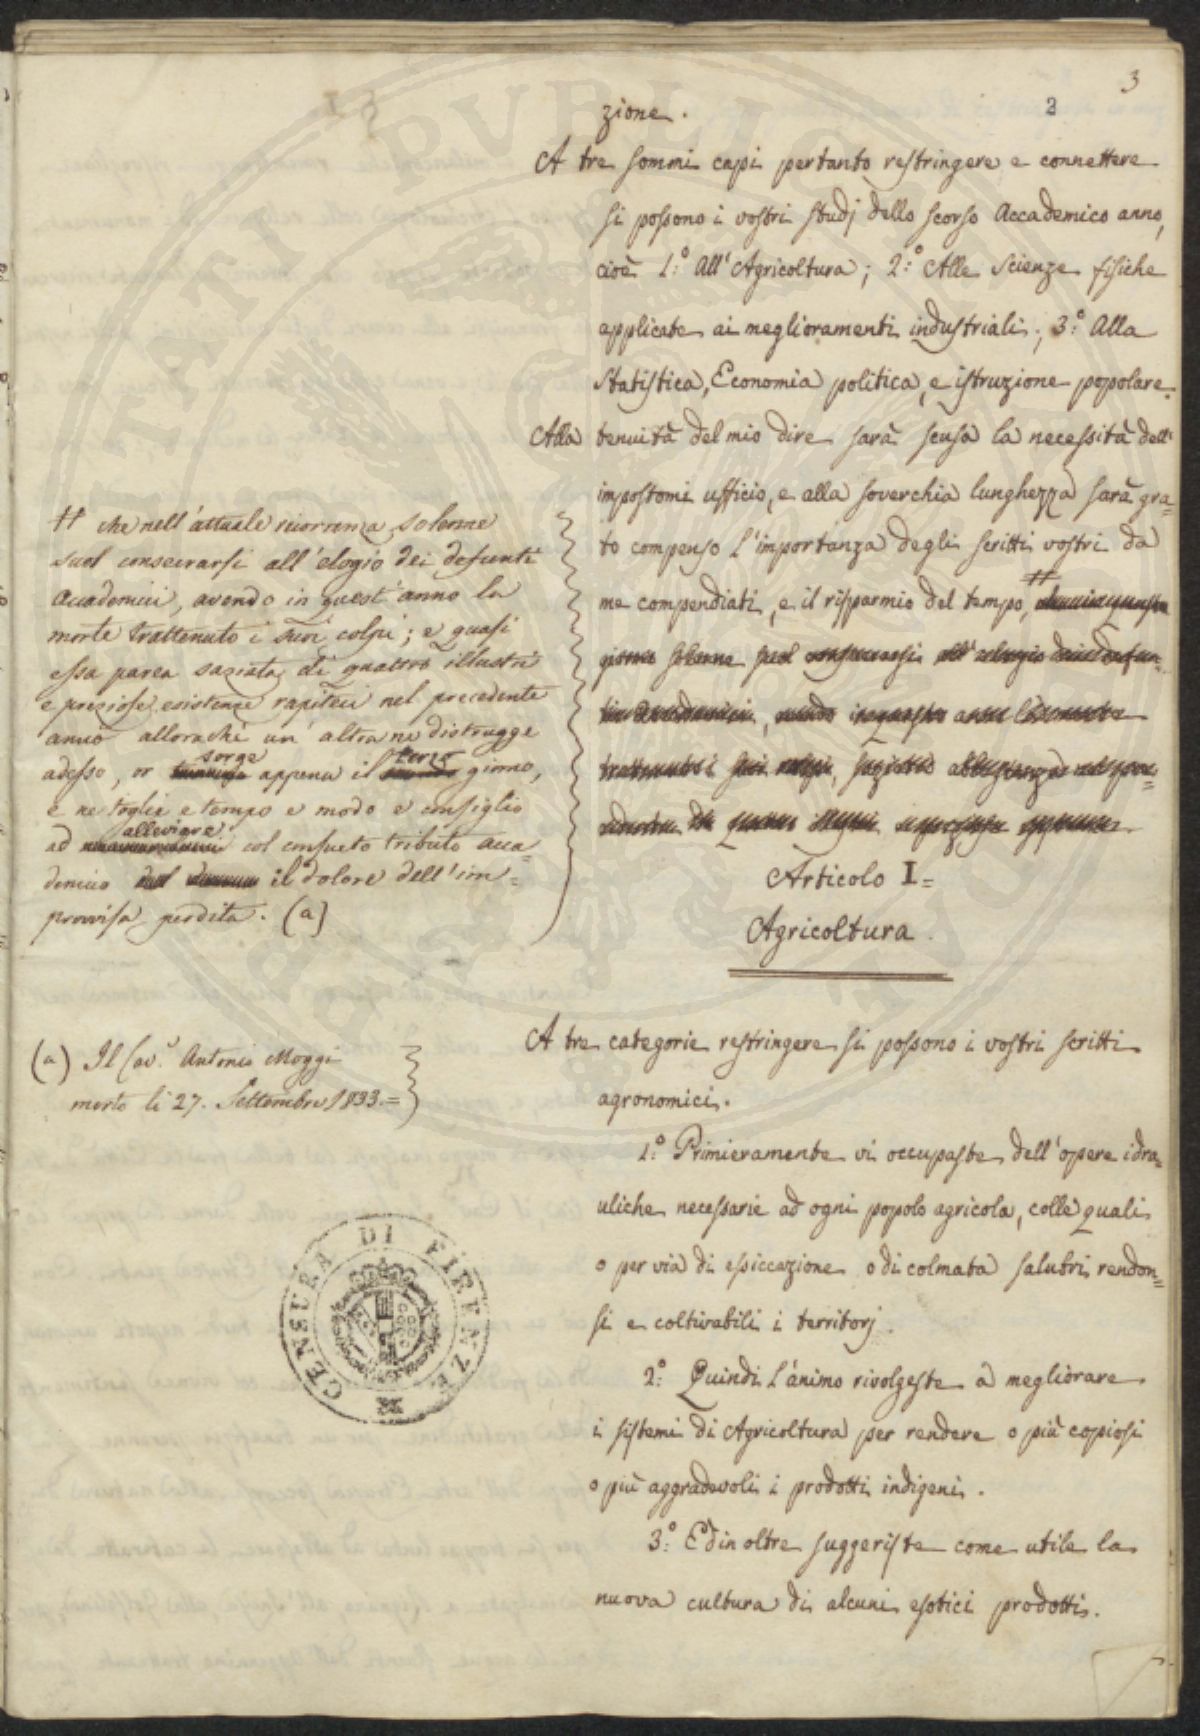 3
3
zione.
A tre sommi capi pertanto restringere e connettere
si possono i vostri studj dello scorso Accademico anno,
cioè 1.º All'Agricoltura; 2.º Alle Scienze fisiche
applicate ai meglioramenti industriali; 3.º Alla
Statistica, Economia politica, e istruzione popolare.
Alla tenuità del mio dire sarà scusa la necessità dell'
impostomi ufficio, e alla soverchia lunghezza sarà gra=
to compenso l'importanza degli scritti vostri da
me compendiati, e il risparmio del tempo, #
giorno solenne suol consecrarsi all'elogio dei defun=
ti Accademici, avendo in quest'anno la morte
trattenuti i suoi colpi, saziata
Articolo I=
Agricoltura.
A tre categorie restringere si possono i vostri scritti
agronomici.
1.º Primieramente vi occupaste dell'opere idra=
uliche necessarie ad ogni popolo agricola, colle quali
o per via di essiccazione o di colmata salubri rendon=
si e coltivabili i territorj.
2.º Quindi l'animo rivolgeste a megliorare
i sistemi di Agricoltura per rendere o più copiosi
o più aggradevoli i prodotti indigeni.
3.º Ed in oltre suggeriste come utile la
nuova cultura di alcuni esotici prodotti.
# che nell'attuale ricorrenza solenne
suol consecrarsi all'elogio dei defunti
Accademici, avendo in quest'anno la
morte trattenuto i suoi colpi; e quasi
essa parea saziata di quattro illustri
e preziose esistenze rapiteci nel precedente
anno allorachè un'altra ne distrugge
adesso, or sorge appena il terzo giorno,
e ne toglie e tempo e modo e consiglio
ad alleviare col consueto tributo acca=
demico il dolore dell'im=
provvisa perdita. (a)
(a) Il Cav.r Antonio Moggi
morto li 27. Settembre 1833.=
CENSURA DI FIRENZE
PUBLICAE UTILITATI